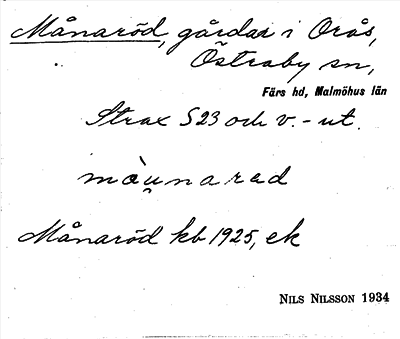 Månaröd, gårdar i Orås,
Östraby sn,
Färs hd, Malmöhus län
Strax S 23 och v. - ut.
màu̯nared
Månaröd kb 1925, ek
NILS NILSSON 1934